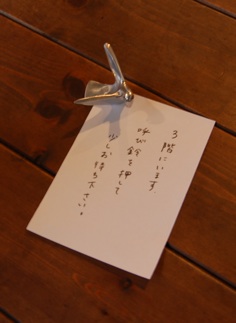 3階にいます。
呼び鈴を押して
少しお待ち下さい。